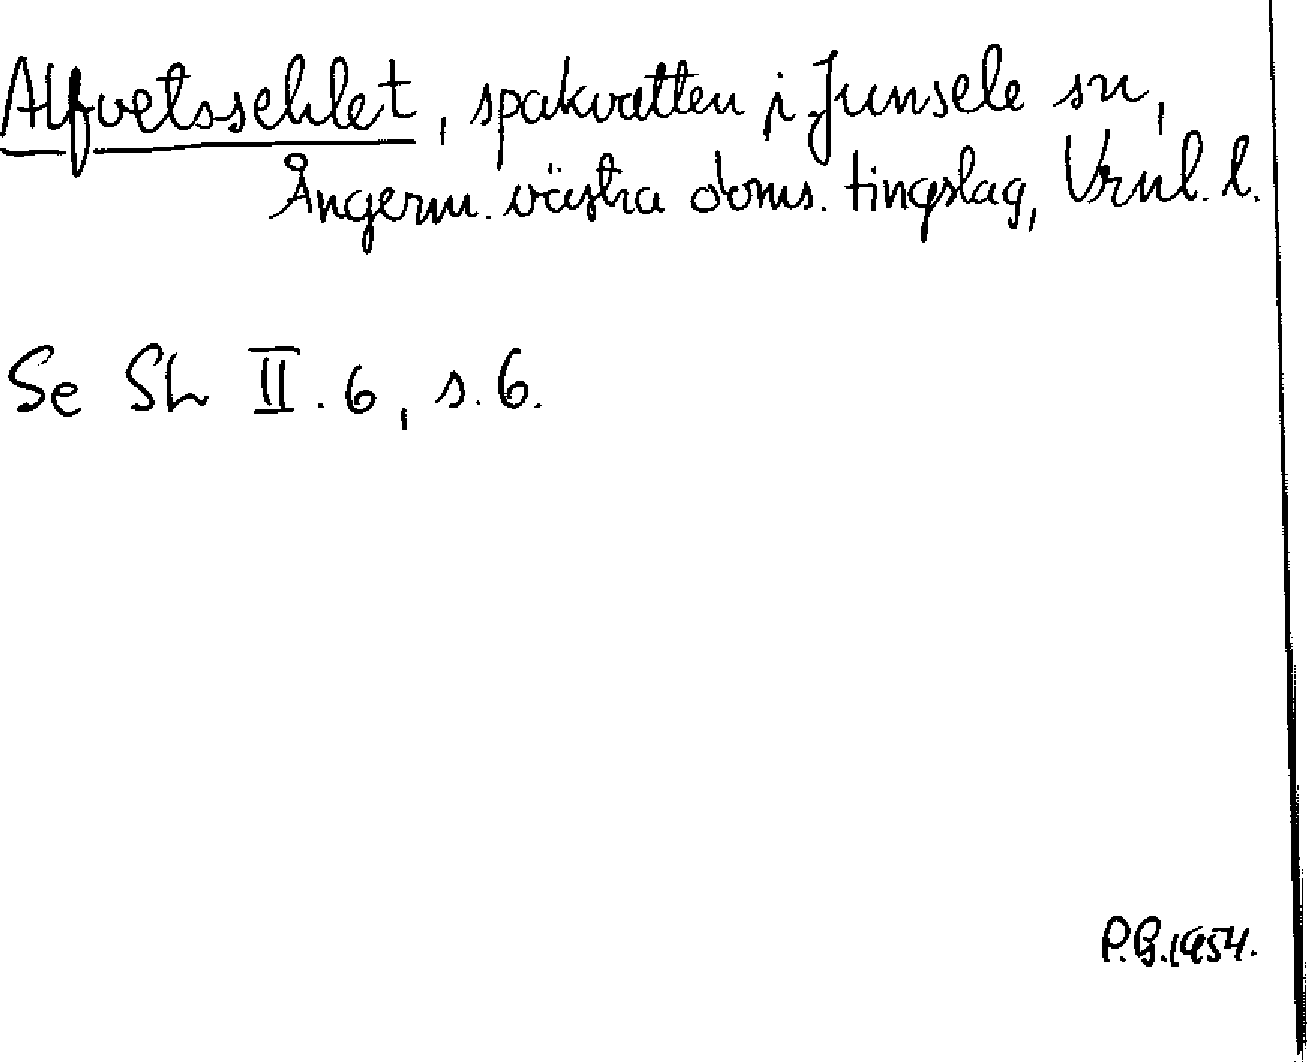 Alfvetssehlet, spakvatten i Junsele sn,
Ångerm. västra doms. tingslag, Vrnl. l.
Se Sh II. 6, s. 6.
P.G. 1954.